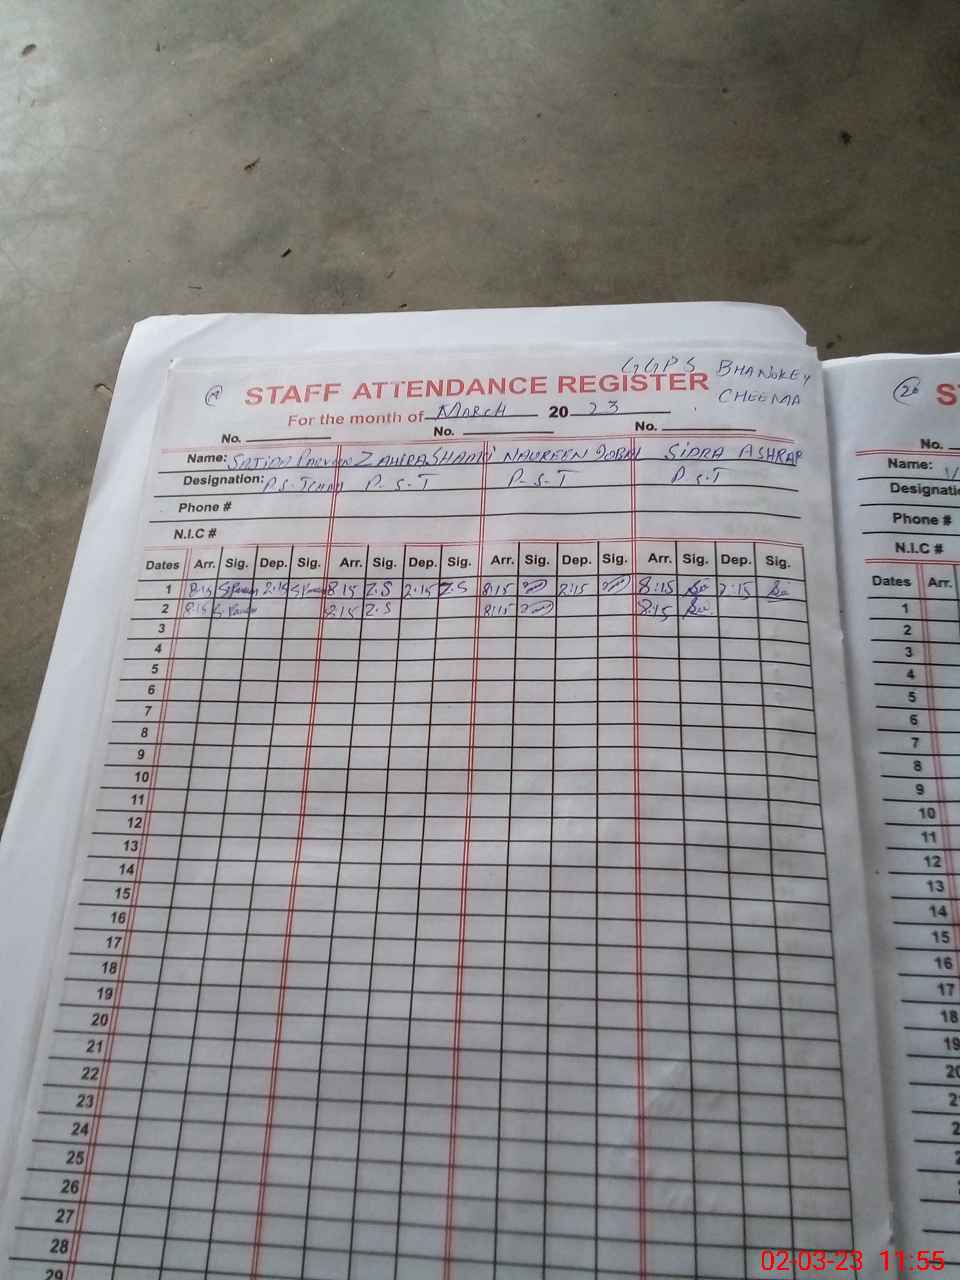 GGPS BHANOKEY
CHEEMA
19 STAFF ATTENDANCE REGISTER
For the month of MARCH 20 23
No. No. No.
Name: SAJIDA PARVEEN ZAHIRA SHAMI NAUREEN SIDRA ASHRAF
Designation: P.S.T P.S.T P-S-T P S.T
Phone #
N.I.C #
Dates Arr. Sig. Dep. Sig. Arr. Sig. Dep. Sig. Arr. Sig. Dep. Sig. Arr. Sig. Dep. Sig.
1 8:15 2:15 8:15 Z.S 2:15 Z.S 8:15 2:15 8:15 2:15
2 8:15 2:15 Z.S 8:15 8:15
3
4
5
6
7
8
9
10
11
12
13
14
15
16
17
18
19
20
21
22
23
24
25
26
27
28
29
20 S
No.
Name:
Designatio
Phone #
N.I.C #
Dates Arr.
1
2
3
4
5
6
7
8
9
10
11
12
13
14
15
16
17
18
19
02-03-23 11:55